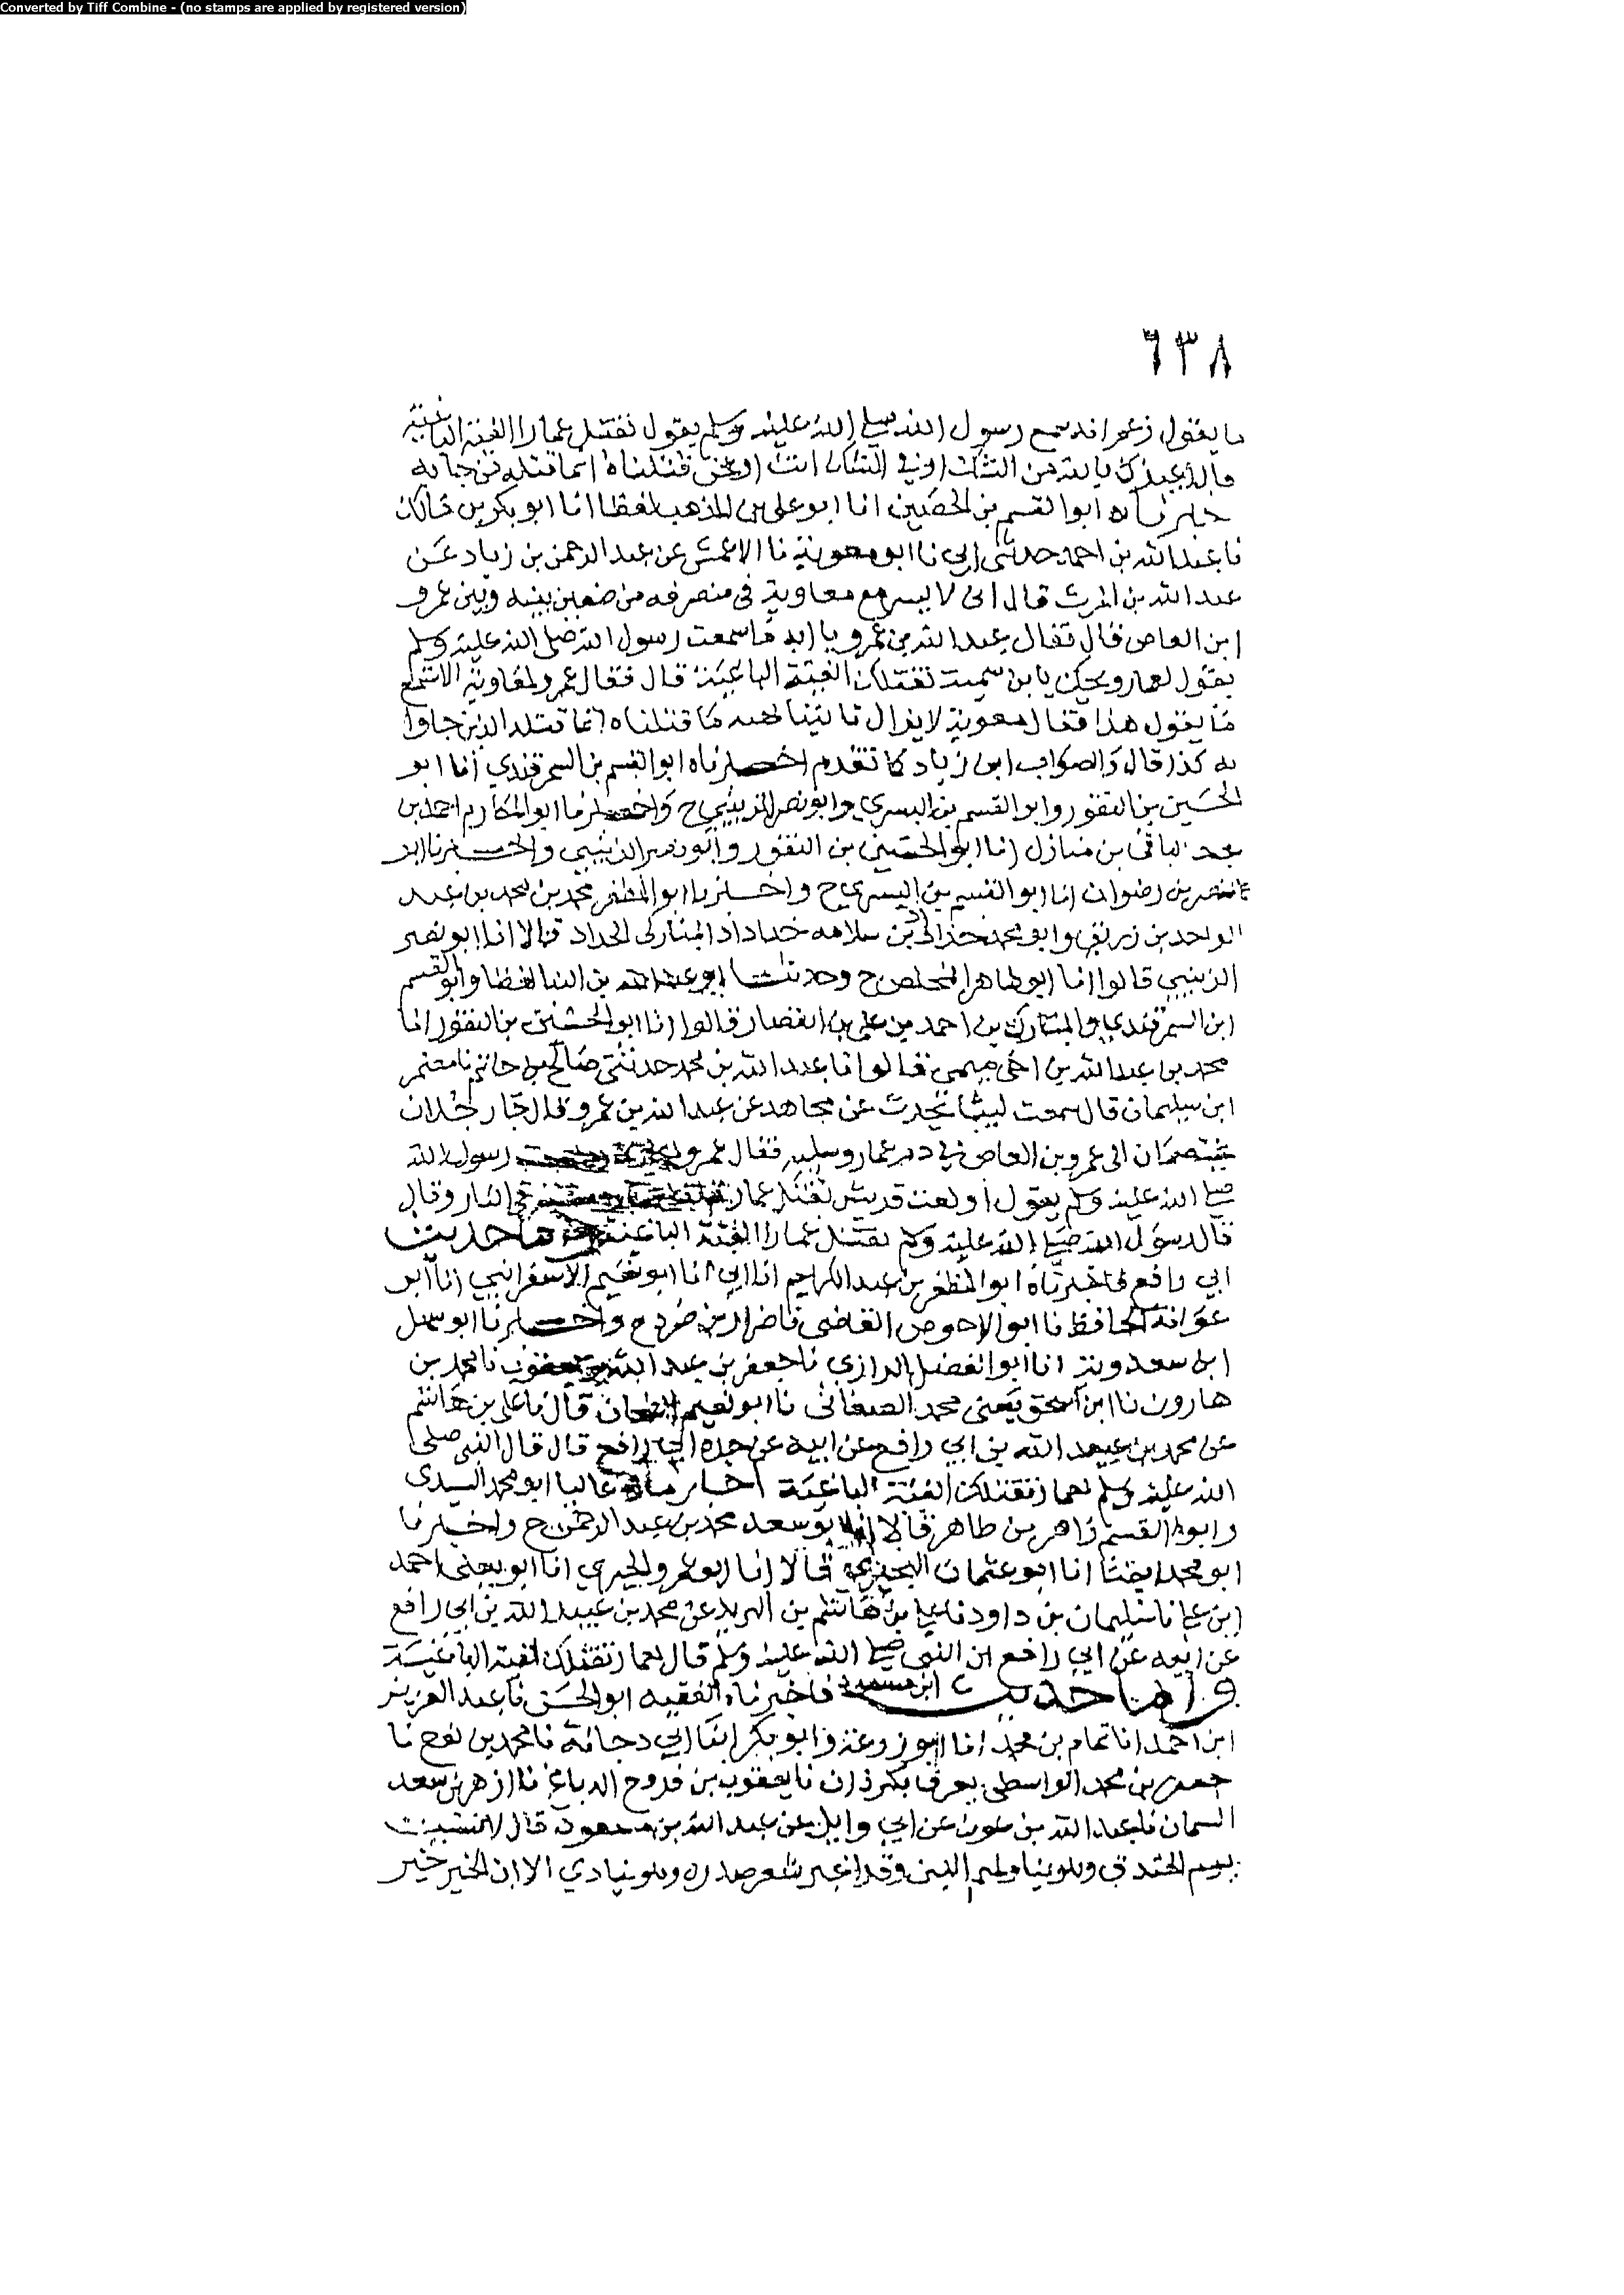 Converted by Tiff Combine - (no stamps are applied by registered version)
٦٣٨
ما يقول زعم انه سمع رسول الله صلى الله عليه وسلم يقول تقتل عمارا الفئة الباغية
قال اعيذك بالله من الشك اوفي الشك انت اونحن قتلناه انما قتله من جا به
اخبرناه ابو القسم بن الحصين انا ابو على بن المذهب لفظا انا ابو بكر بن مالك
نا عبد الله بن احمد حدثنى ابي نا ابو معوية نا الاعمش عن عبد الرحمن بن زياد عن
عبد الله بن الحرث قال انى لاسير مع معاوية في منصرفه من صفين بينه وبين عمرو
ابن العاص قال فقال عبد الله بن عمرو يا ابه ما سمعت رسول الله صلى الله عليه وسلم
يقول لعمار ويحك يا بن سمية تقتلك الفئة الباغية قال فقال عمرو لمعاوية الا تسمع
ما يقول هذا فقال معوية لا يزال تاتينا بهنه ما قتلناه انما قتله الذين جاوا
به كذا قال والصواب ابن زياد كما تقدم اخبرناه ابو القسم بن السمرقندي انا ابو
الحسين بن النقور وابو القسم بن البسري وابو نصر الزينبي ح واخبرنا ابو المكارم احمد بن
عبد الباقى بن منازل انا ابو الحسين بن النقور وابو نصر الزينبي واخبرنا ابو
نصر بن رضوان انا ابو القسم بن البسري ح واخبرنا ابو المظفر محمد بن محمد بن عبد
الواحد بن زريق وابو محمد بن سلامه خداداد المباركى الحداد قالا انا ابو نصر
الزينبي قالوا انا ابو طاهر المخلص ح وحدثنا ابو عبد الله بن البنا لفظا وابو القسم
ابن السمرقندي والمبارك بن احمد بن على بن القصار قالوا انا ابو الحسين بن النقور انا
محمد بن عبد الله بن اخى ميمي قالوا نا عبد الله بن محمد حدثنى صالح بن حاتم نا معتمر
ابن سليمان قال سمعت ليثا يحدث عن مجاهد عن عبد الله بن عمرو قال جا رجلان
يختصمان الى عمرو بن العاص في دم عمار وسلبه فقال عمرو رسول الله
صلى الله عليه وسلم يقول اولعت قريش بقتل عمار في النار وقال
قال رسول الله صلى الله عليه وسلم تقتل عمارا الفئة الباغية واما حديث
ابي رافع فاخبرناه ابو المظفر بن عبد الكريم انا ابي انا ابو نعيم الاسفرايني انا ابو
عوانة الحافظ نا ابو الاحوص القاضى نا ضرار بن صرد ح واخبرنا ابو سهل
ابن سعدوية انا ابو الفضل الرازي نا جعفر بن عبد الله بن يعقوب نا محمد بن
هارون نا ابن اسحق يعنى محمد الصغانى نا ابو نعيم الطحان قال نا على بن هاشم
عن محمد بن عبيد الله بن ابي رافع عن ابيه عن جده ابي رافع قال قال النبي صلى
الله عليه وسلم لعمار تقتلك الفئة الباغية اخبرناه عاليا ابو محمد السيدى
وابو القسم زاهر بن طاهر قالا انا ابو سعد محمد بن عبد الرحمن ح واخبرنا
ابو محمد ايضا انا ابو عثمان البحيري قالا انا ابو عمرو الحيري انا ابو يعلى احمد
ابن على نا سليمان بن داود نا على بن هاشم بن البريد عن محمد بن عبيد الله بن ابي رافع
عن ابيه عن ابي رافع ان النبي صلى الله عليه وسلم قال لعمار تقتلك الفئة الباغية
واما حديث ابن مسعود فاخبرناه الفقيه ابو الحسن نا عبد العزيز
ابن احمد انا تمام بن محمد انا ابو زرعة وابو بكر ابنا ابي دجانة نا محمد بن نوح نا
جعفر بن محمد الواسطى يعرف بكرذان نا يعقوب بن فروح الدباغ نا ازهر بن سعد
السمان نا عبد الله بن عون عن ابي وايل عن عبد الله بن مسعود قال لا نسيت
يوم الخندق وهو يناولهم اللبن وقد اغبر شعر صدره وهو ينادي الا ان الخير خير